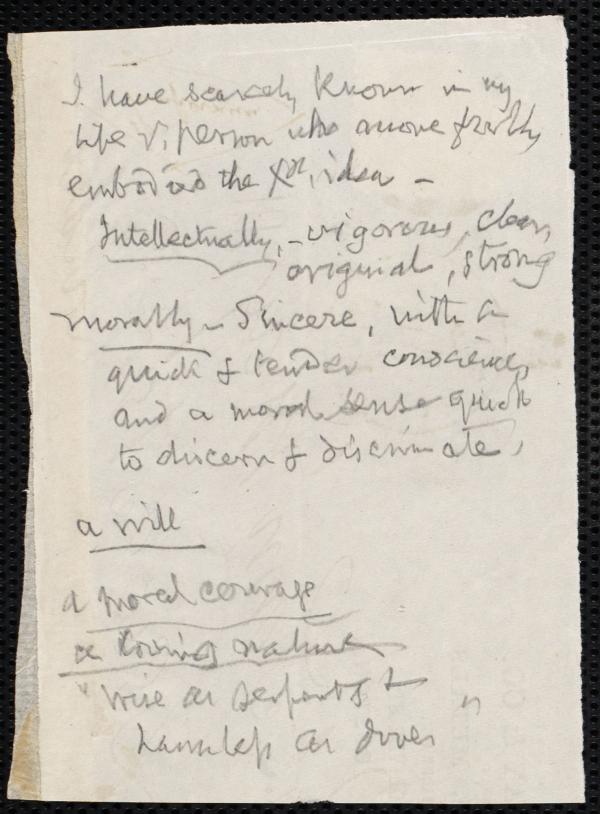 I have scarcely known in my
life a person who more fully
embodied the Xn. idea -
Intellectually, - vigorous, clear,
original, strong
morally - Sincere, with a
quick & tender conscience,
and a moral sense quick
to discern & discriminate,
a will
a moral courage
a loving nature
"wise as serpents &
harmless as doves"